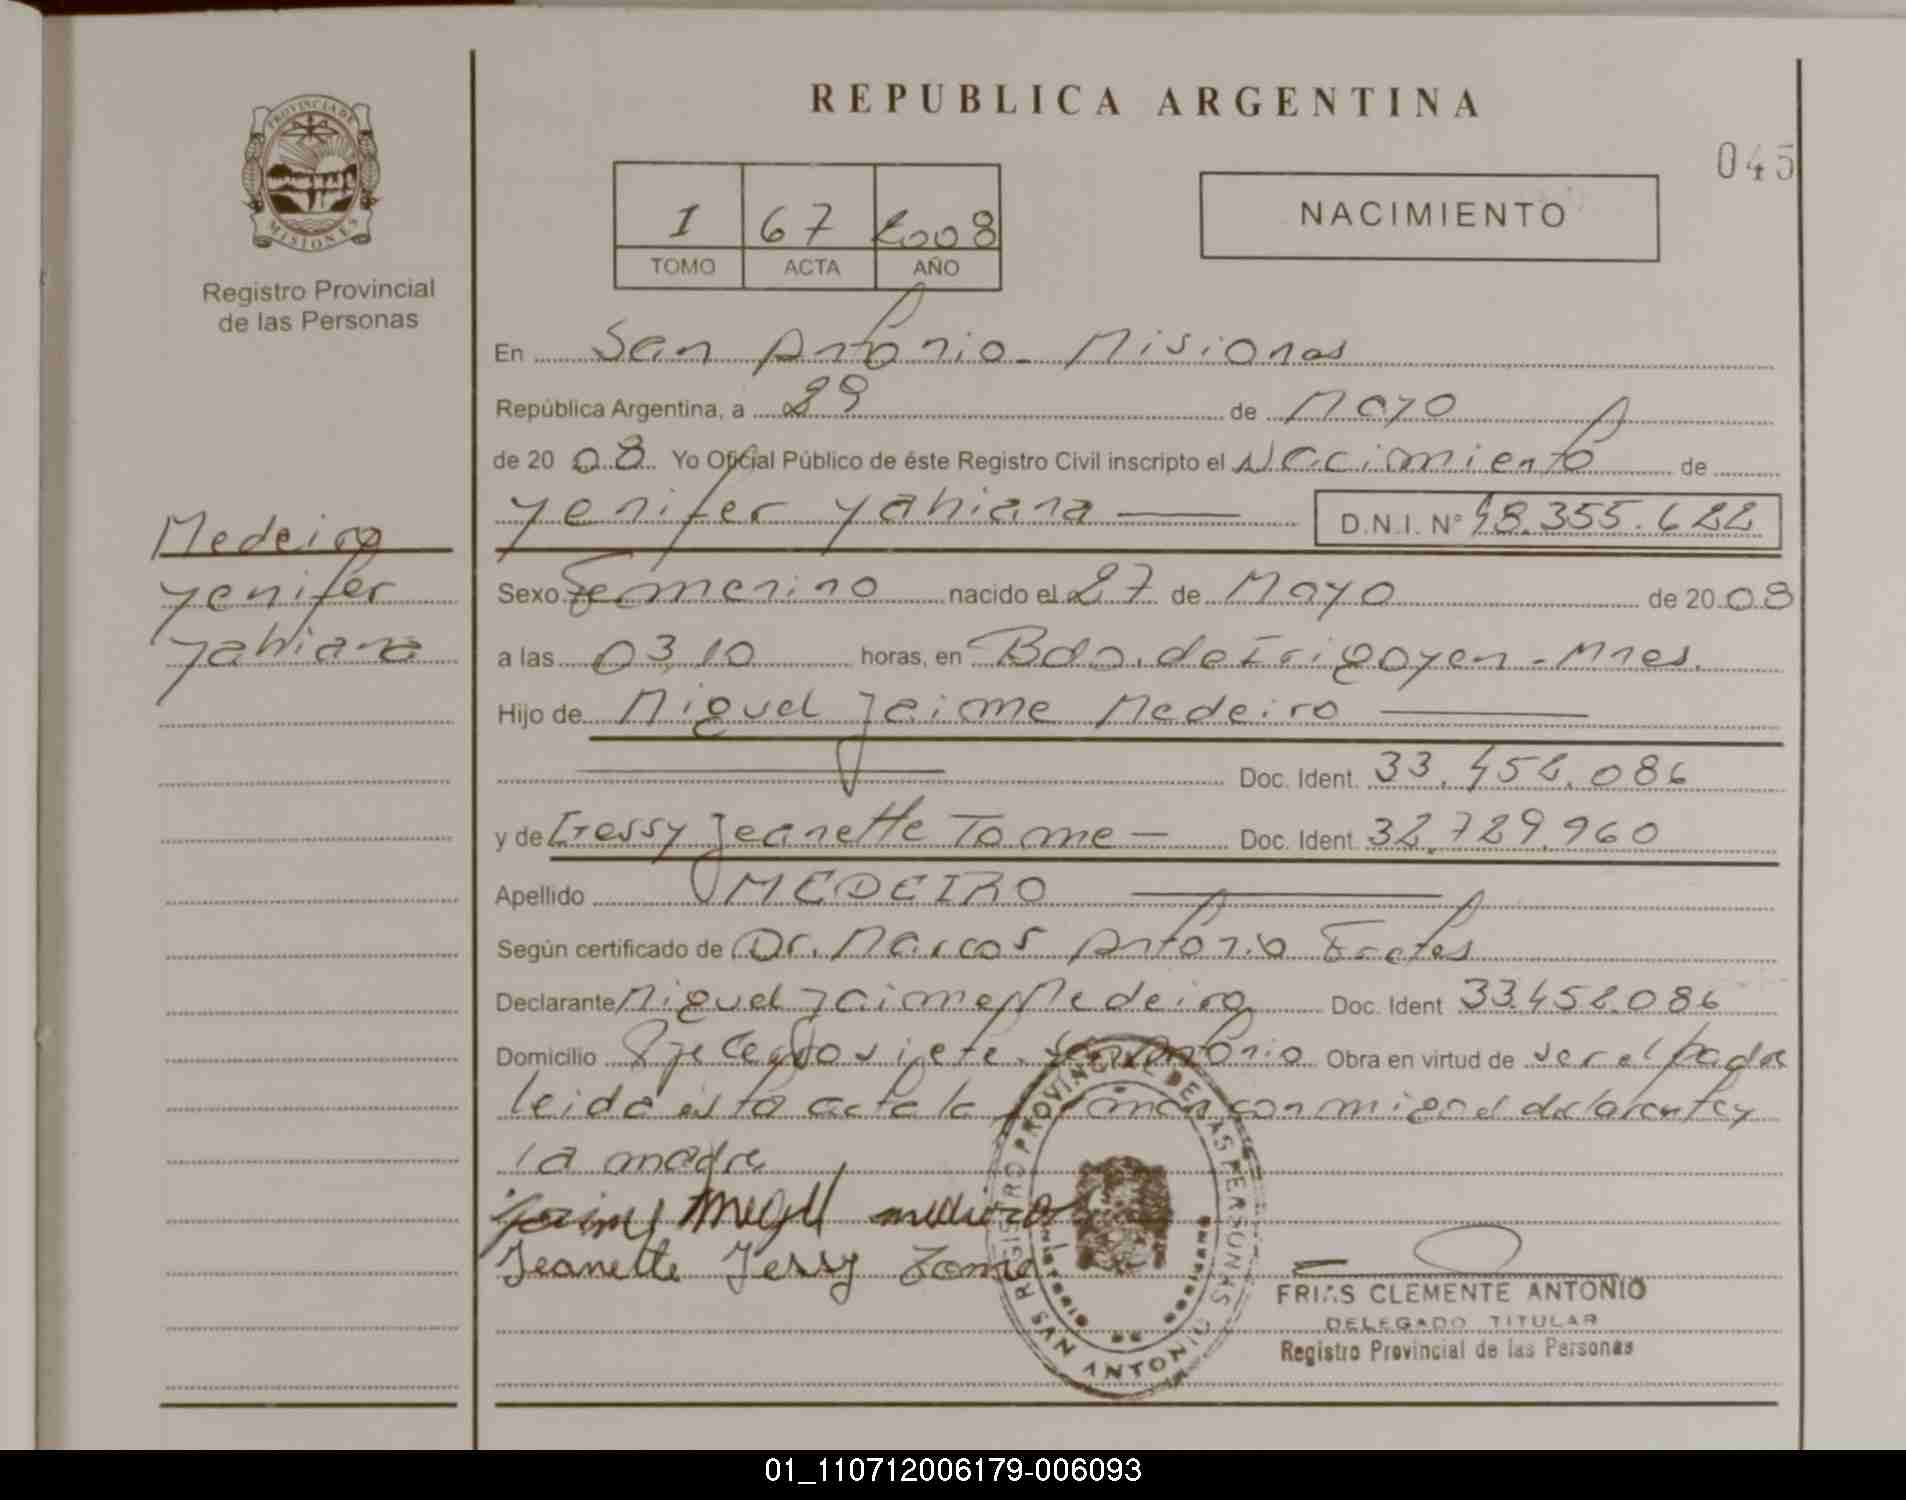 REPUBLICA ARGENTINA
045
PROVINCIA DE
MISIONES
Registro Provincial
de las Personas
I 67 2008
TOMO ACTA AÑO
NACIMIENTO
En San Antonio - Misiones
República Argentina, a 29 de Mayo
de 20 08 Yo Oficial Público de éste Registro Civil inscripto el Nacimiento de
Yenifer Yahiara D.N.I. N° 48.355.622
Medeiro
Yenifer
Yahiara
Sexo Femenino nacido el 27 de Mayo de 20 08
a las 03,10 horas, en Bdo. de Irigoyen - Mnes.
Hijo de Miguel Jaime Medeiro
Doc. Ident. 33.452.086
y de Gessy Jeanette Tome Doc. Ident 32.729.960
Apellido MEDEIRO
Según certificado de Dr. Marcos Antonio Fretes
Declarante Miguel Jaime Medeiro Doc. Ident 33.452.086
Domicilio siete. San Antonio Obra en virtud de ser el padre
leida esta acta la firman conmigo el declarante y
la madre
Jaime Miguel medeiro
Jeanette Jessy Tome
REGISTRO PROVINCIAL DE LAS PERSONAS
SAN ANTONIO
FRIAS CLEMENTE ANTONIO
DELEGADO TITULAR
Registro Provincial de las Personas
01_110712006179-006093